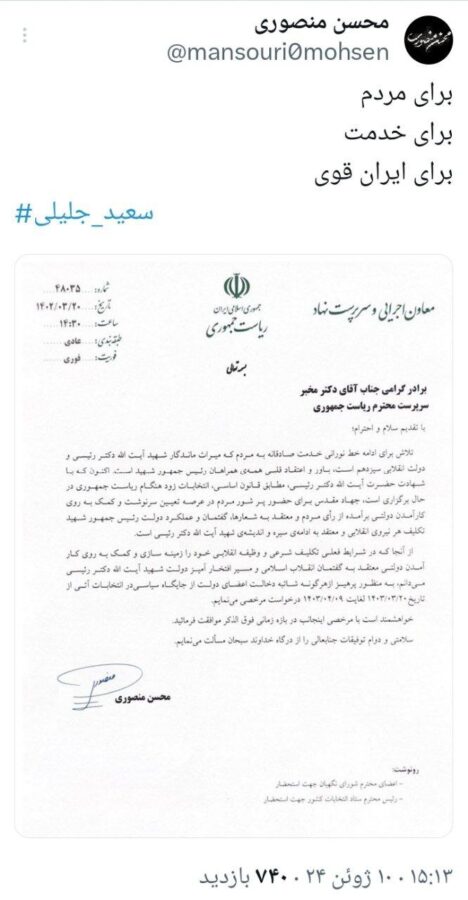 محسن منصوری
@mansouri0mohsen
برای مردم
برای خدمت
برای ایران قوی
#سعید_جلیلی
شماره: ۴۸۰۳۵
تاریخ: ۱۴۰۲/۰۳/۲۰
ساعت: ۱۴:۳۰
طبقه‌بندی: عادی
فوریت: فوری
جمهوری اسلامی ایران
ریاست جمهوری
معاون اجرایی و سرپرست نهاد
بسمه تعالی
برادر گرامی جناب آقای دکتر مخبر
سرپرست محترم ریاست جمهوری
با تقدیم سلام و احترام؛
تلاش برای ادامه خط نورانی خدمت صادقانه به مردم که میراث ماندگار شهید آیت الله دکتر رئیسی و
دولت انقلابی سیزدهم است، باور و اعتقاد قلبی همه‌ی همراهان رئیس جمهور شهید است. اکنون که با
شهادت حضرت آیت الله دکتر رئیسی، مطابق قانون اساسی، انتخابات زود هنگام ریاست جمهوری در
حال برگزاری است، جهاد مقدس برای حضور پر شور مردم در عرصه تعیین سرنوشت و کمک به روی
کارآمدن دولتی برآمده از رأی مردم و معتقد به شعارها، گفتمان و عملکرد دولت رئیس جمهور شهید
تکلیف هر نیروی انقلابی و معتقد به ادامه‌ی سیره و اندیشه‌ی شهید آیت الله دکتر رئیسی است.
از آنجا که در شرایط فعلی تکلیف شرعی و وظیفه انقلابی خود را زمینه سازی و کمک به روی کار
آمدن دولتی معتقد به گفتمان انقلاب اسلامی و مسیر افتخار آمیز دولت شهید آیت الله دکتر رئیسی
می‌دانم، به منظور پرهیز از هرگونه شائبه دخالت اعضای دولت از جایگاه سیاسی در انتخابات آتی از
تاریخ ۱۴۰۳/۰۳/۲۰ لغایت ۱۴۰۳/۰۴/۰۹ درخواست مرخصی می‌نمایم.
خواهشمند است با مرخصی اینجانب در بازه زمانی فوق الذکر موافقت فرمائید.
سلامتی و دوام توفیقات جنابعالی را از درگاه خداوند سبحان مسألت می‌نمایم.
محسن منصوری
رونوشت:
- اعضای محترم شورای نگهبان جهت استحضار
- رئیس محترم ستاد انتخابات کشور جهت استحضار
۱۵:۱۳ · ۱۰ ژوئن ۲۴ · ۷۴۰ بازدید